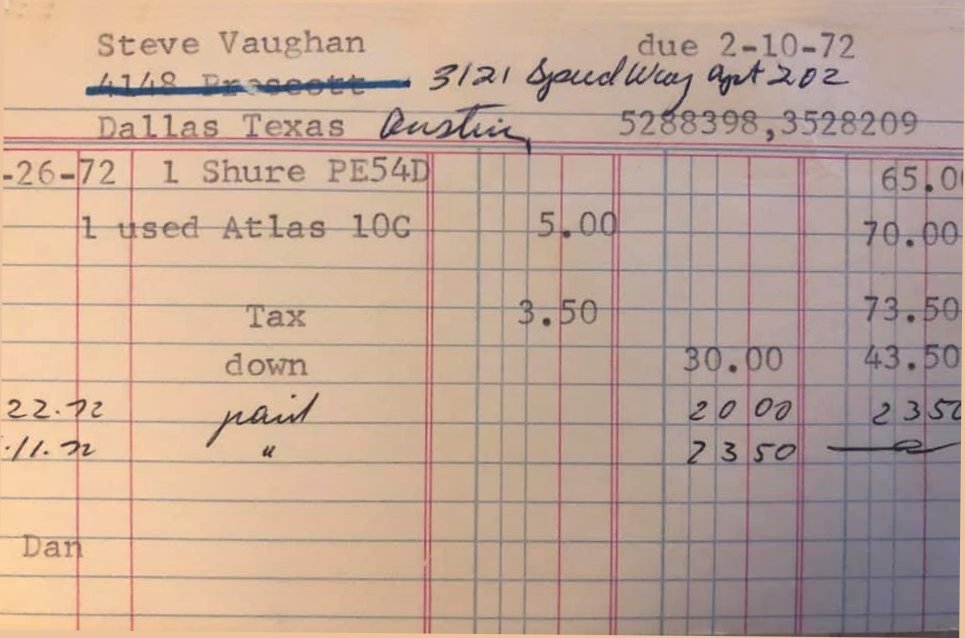 Steve Vaughan due 2-10-72
4148 Prescott 3121 SpeedWay apt 202
Dallas Texas Austin, 5288398,3528209
-26-72 1 Shure PE54D 65.0
1 used Atlas 10C 5.00 70.00
Tax 3.50 73.50
down 30.00 43.50
22.72 paid 20 00 23 50
.11.72 " 23 50 —0—
Dan